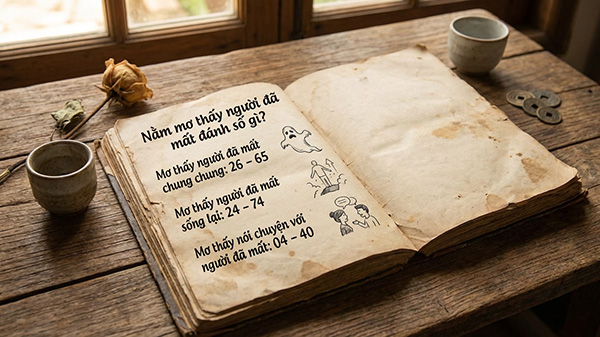 Nằm mơ thấy người đã
mất đánh số gì?
Mơ thấy người đã mất
chung chung: 26 – 65
Mơ thấy người đã mất
sống lại: 24 – 74
Mơ thấy nói chuyện với
người đã mất: 04 – 40